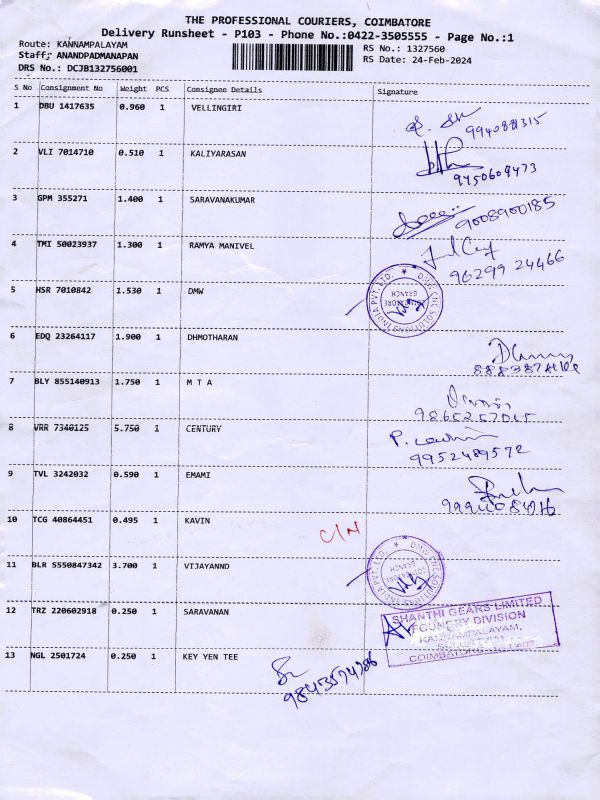 THE PROFESSIONAL COURIERS, COIMBATORE
Delivery Runsheet - P103 - Phone No.:0422-3505555 - Page No.:1
Route: KANNAMPALAYAM
RS No.: 1327560
Staff: ANANDPADMANAPAN
RS Date: 24-Feb-2024
DRS No.: DCJB132756001
S No Consignment No Weight PCS Consignee Details Signature
1 DBU 1417635 0.960 1 VELLINGIRI
994081315
2 VLI 7014710 0.510 1 KALIYARASAN
9450609473
3 GPM 355271 1.400 1 SARAVANAKUMAR
9008900185
4 TMI 50023937 1.300 1 RAMYA MANIVEL
96299 24466
5 HSR 7010842 1.530 1 DMW
DMW CNC SOLUTIONS INDIA PVT. LTD.
COIMBATORE
BRANCH
6 EDQ 23264117 1.900 1 DHMOTHARAN
7 BLY 855140913 1.750 1 M T A
8 VRR 7340125 5.750 1 CENTURY
9952489572
9 TVL 3242032 0.590 1 EMAMI
10 TCG 40864451 0.495 1 KAVIN
C/N
11 BLR 5550847342 3.700 1 VIJAYANND
DMW CNC SOLUTIONS INDIA PVT. LTD.
COIMBATORE
BRANCH
12 TRZ 220602918 0.250 1 SARAVANAN
SHANTHI GEARS LIMITED
FOUNDRY DIVISION
KANNAMPALAYAM,
COIMBATORE
13 NGL 2501724 0.250 1 KEY YEN TEE